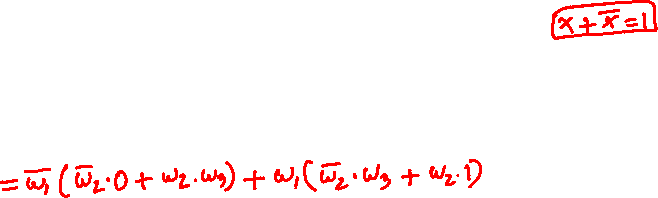 x + x̅ = 1
= w̅₁ ( w̅₂ · 0 + w₂ · w₃ ) + w₁ ( w̅₂ · w₃ + w₂ · 1 )